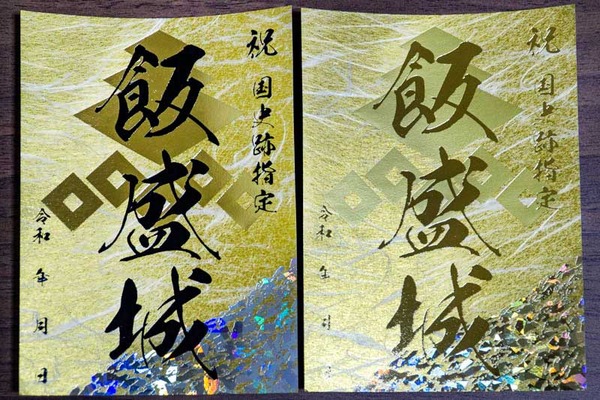 祝 国史跡指定
飯盛城
令和 年 月 日
祝 国史跡指定
飯盛城
令和 年 月 日